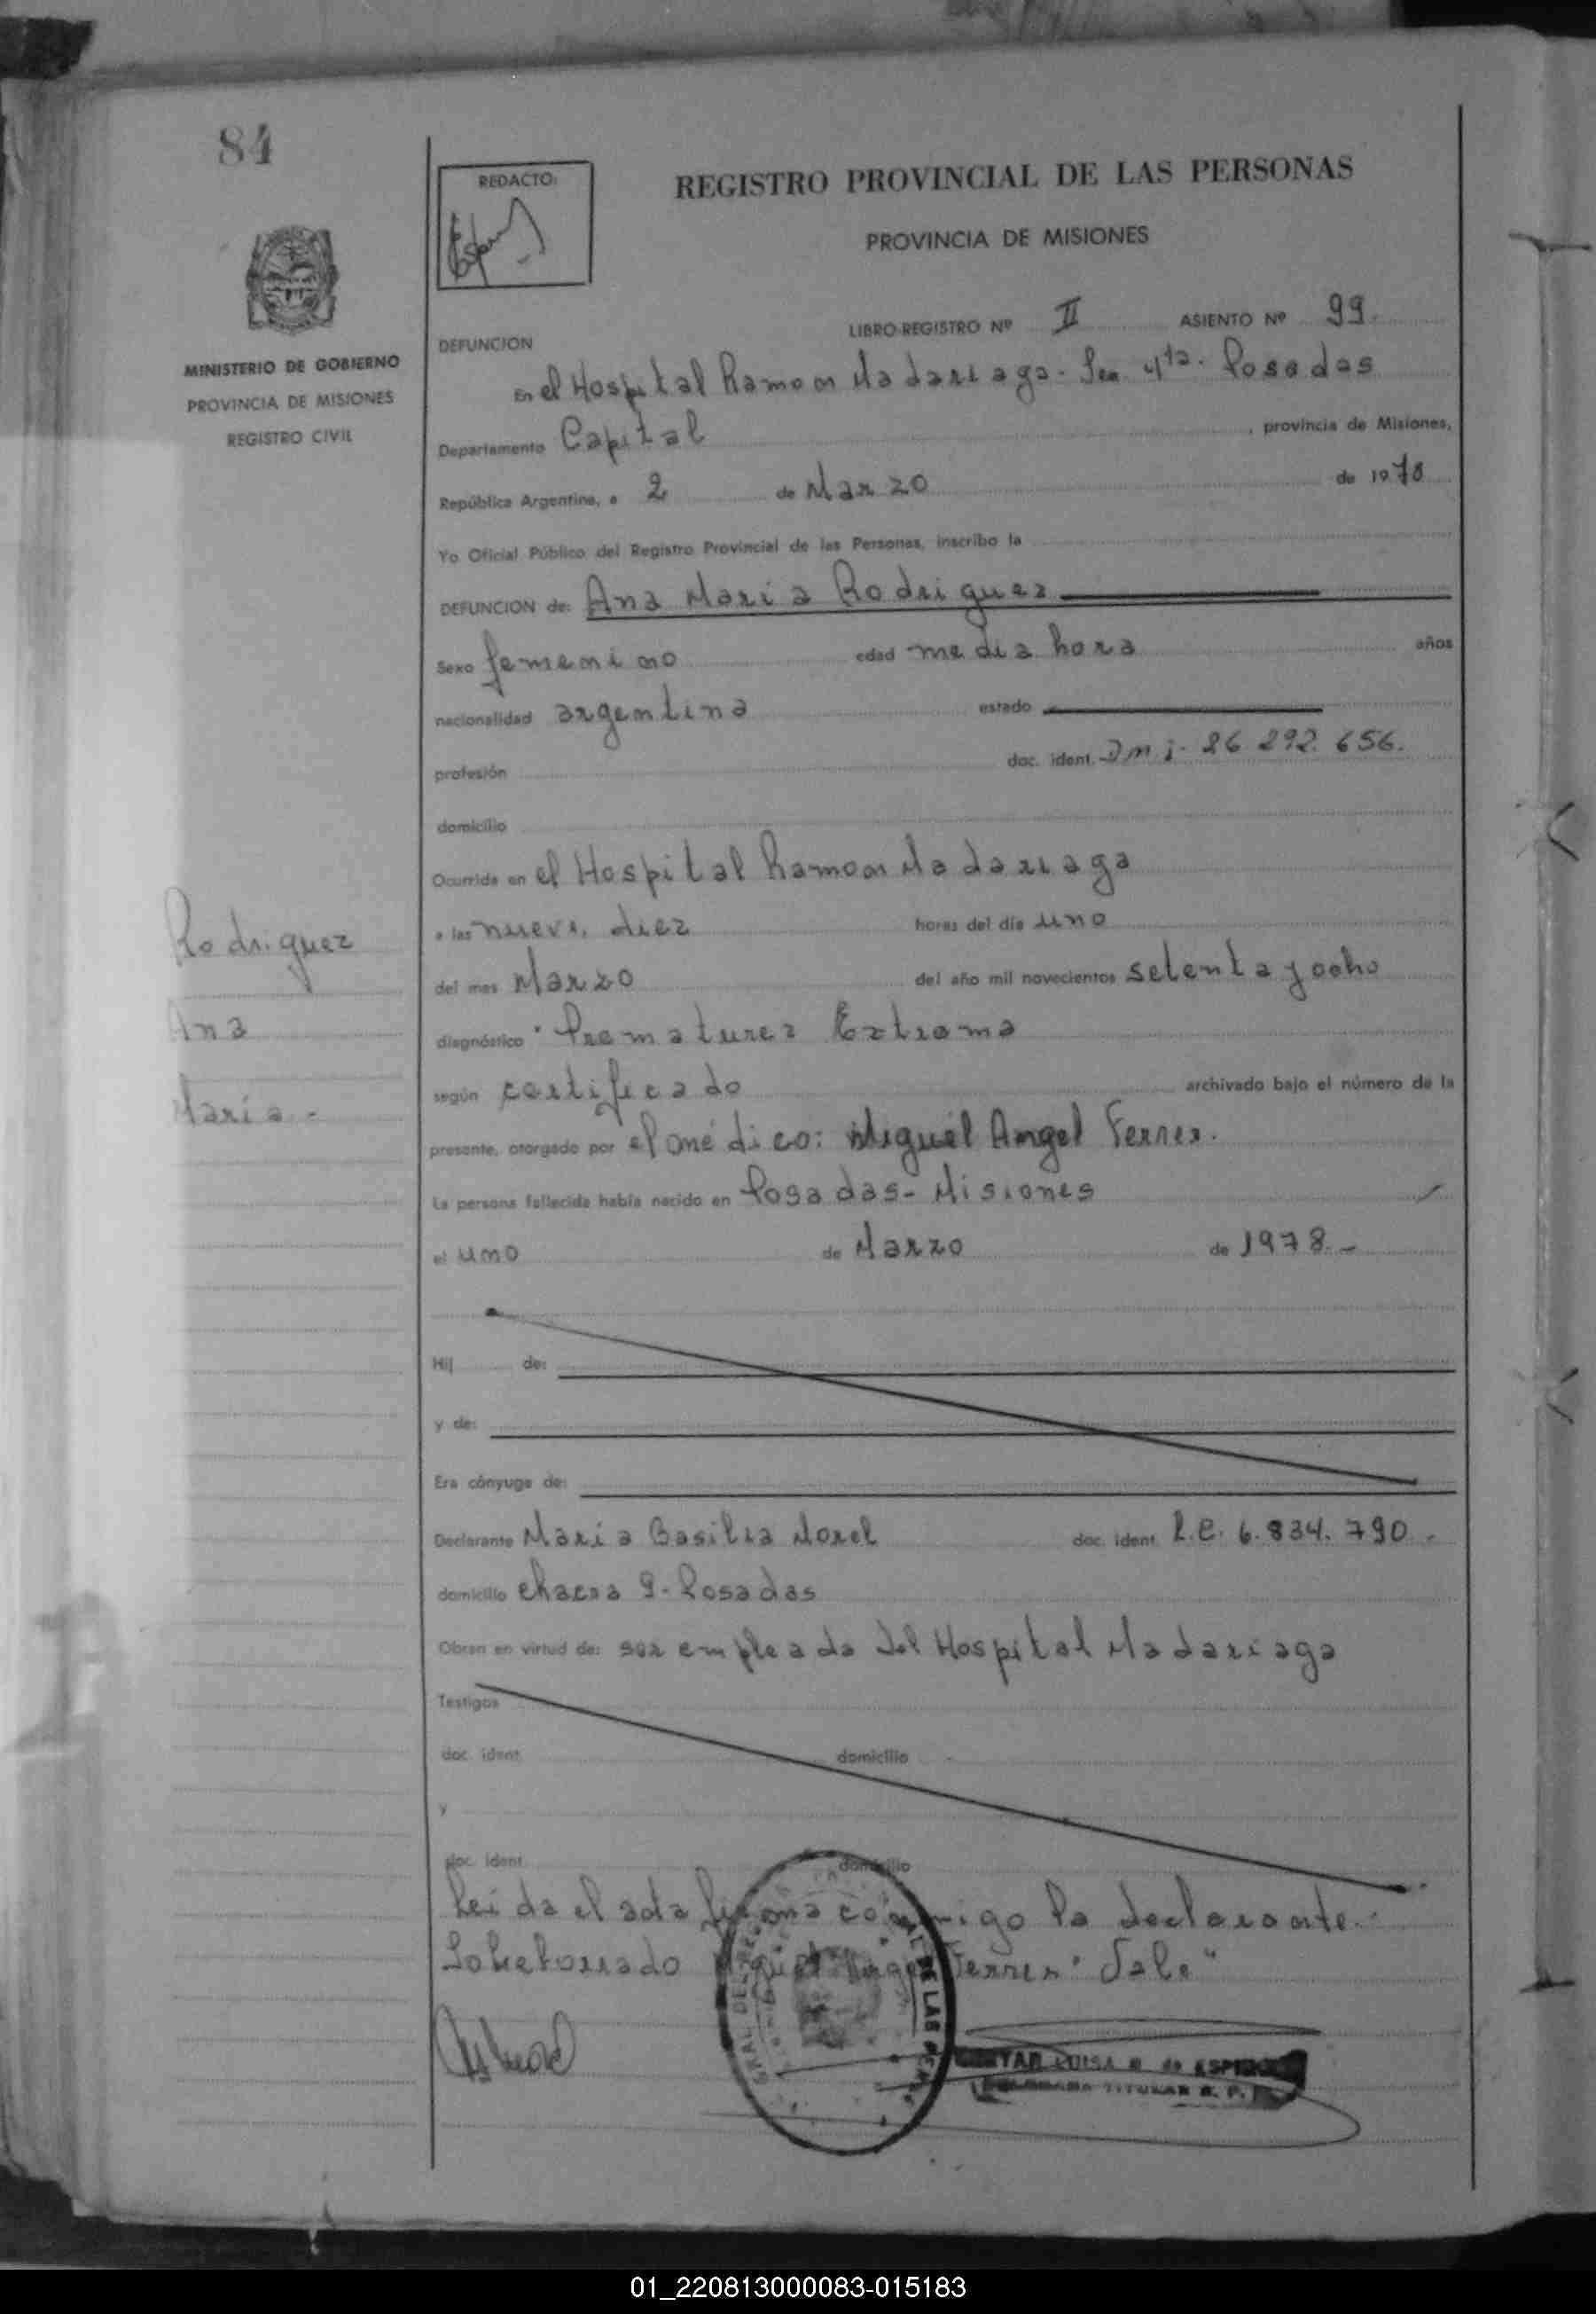 84
REDACTO:
REGISTRO PROVINCIAL DE LAS PERSONAS
PROVINCIA DE MISIONES
MINISTERIO DE GOBIERNO
PROVINCIA DE MISIONES
REGISTRO CIVIL
LIBRO-REGISTRO Nº II ASIENTO Nº 99.
DEFUNCION
En el Hospital Ramon Madariaga - Sec 4ta. Posadas
Departamento Capital , provincia de Misiones,
República Argentina, a 2 de Marzo de 1978
Yo Oficial Público del Registro Provincial de las Personas, inscribo la
DEFUNCION de: Ana Maria Rodriguez
Sexo femenino edad media hora años
nacionalidad argentina estado
profesión doc. ident. Dni. 26 292. 656.
domicilio
Ocurrida en el Hospital Ramon Madariaga
a las nueve, diez horas del día uno
del mes Marzo del año mil novecientos setenta y ocho
diagnóstico "Prematurez Extrema
según certificado archivado bajo el número de la
presente, otorgado por el médico: Miguel Angel Ferrer.
La persona fallecida había nacido en Posadas - Misiones
el uno de Marzo de 1978.-
Rodriguez
Ana
Maria.-
Hij de:
y de:
Era cónyuge de:
Declarante Maria Basilia Morel doc. ident. L.C. 6.834.790.
domicilio chacra 9 - Posadas
Obran en virtud de: ser empleada del Hospital Madariaga
Testigos
doc. ident. domicilio
y
doc. ident. domicilio
Leida el acta firma conmigo la declarante.-
Sobreborrado Miguel Angel Ferrer "Vale"
LUISA de
TITULAR R. P.
01_220813000083-015183